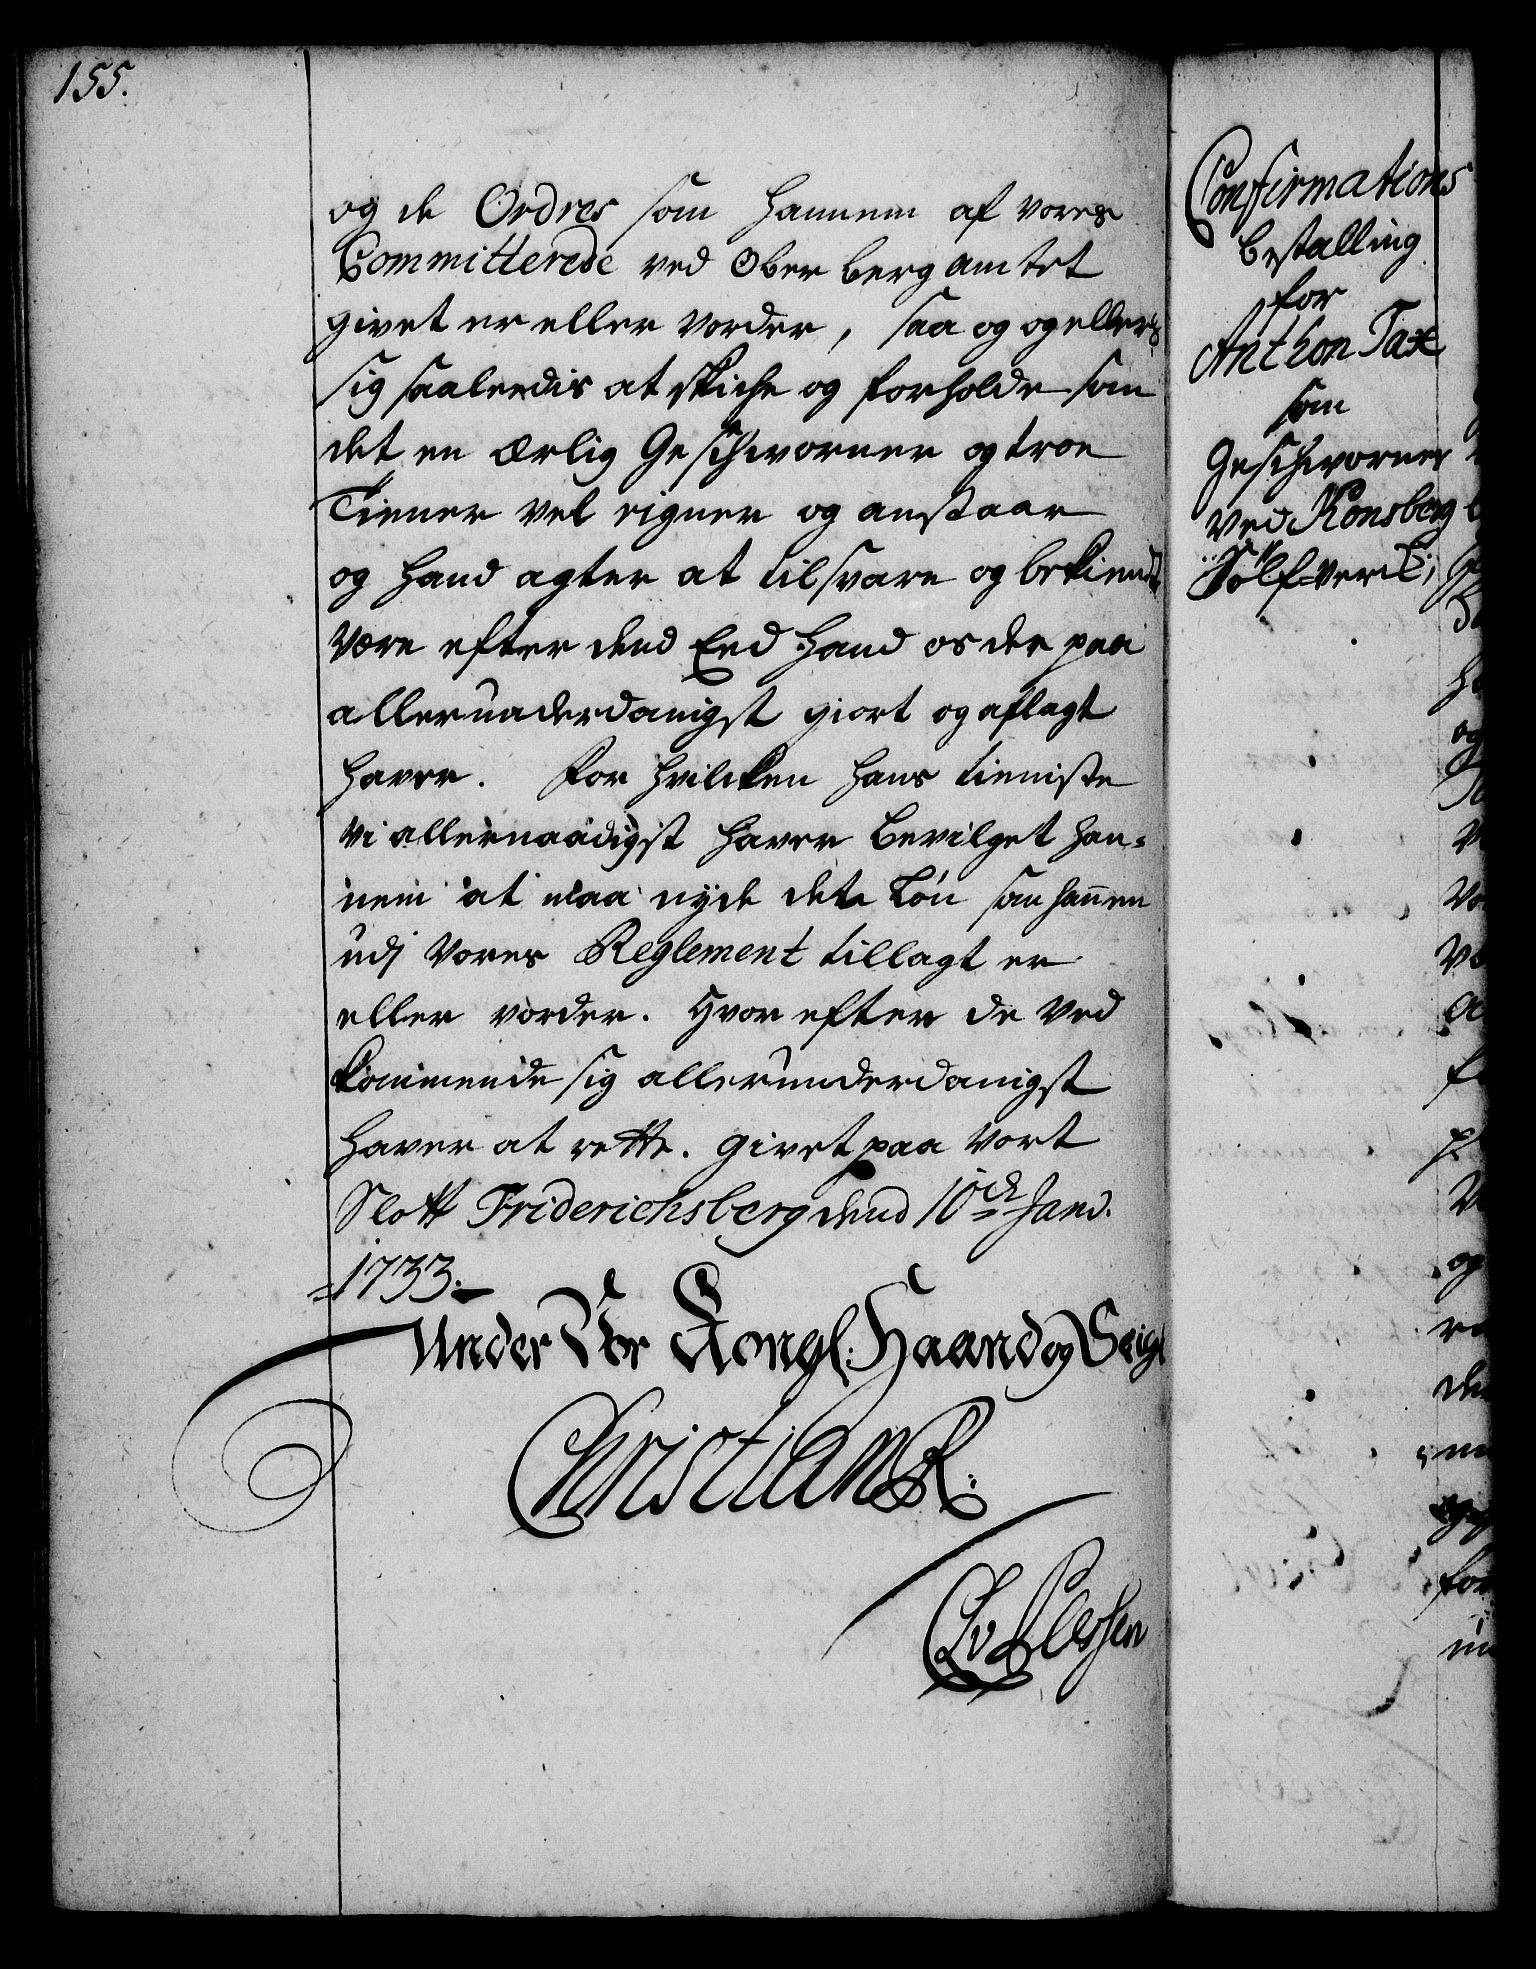 155.
og de Ordres som hannem af vores
Committerede ved Ober berg amtet
givet er eller vorder, saa og og ellers
sig saaleedis at skicke og forholde som
det en ærlig Geschworner og troe
Tiener vel eigner og anstaar
og hand agter at tilsvare og bekiendt
være efter dend Eed hand os der paa
allerunderdanigst giort og aflagt
haver. For hvilcken hans tieniste
vi allernaadigst haver bevilget han=
nem at maa nyde dete Løn som hannem
udj vores Reglement tillagt er
eller vorder. Hvor efter de ved
kommende sig allerunderdanigst
haver at rette. Givet paa vort
Slott Friderichsberg dend 10de Janv.
1733.
Under Vor Kongl: Haand og Seigl
Christian R:
CAv Plessen
Confirmations
bestalling
for
Anthon Tax
som
Geschworner
ved Konsberg
Sølf=Verck;